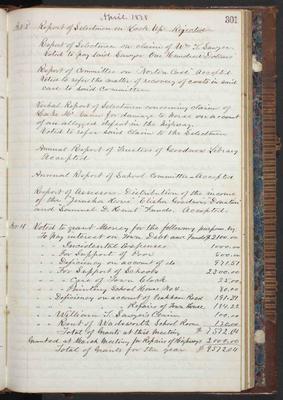 April 1878
301
Report of Selectmen on Lock Up Rejected
Report of Selectmen on claim of Wm T. Sawyer
Voted to pay Sawyer One Hundred Dollars
Report of Committee on "Norton Case" Accepted
Voted to refer the matter of recovery of costs in said
case to said Committee
Verbal Report of Selectmen concerning claim of
for damage to horse on account
of an alleged defect in the highway.
Voted to refer said Claim to the Selectmen
Annual Report of Trustees of Goodnow Library
Accepted
Annual Report of School Committee - Accepted
Report of Assessors. Distribution of the income
of the "Jerusha Howe" "Elisha Goodwin Donation"
and Samuel D. Hunt Funds. Accepted
Voted to grant Money for the following purposes, viz
To Pay interest on Town Debt and Funds $2100.00
" " Incidental Expenses 1000.00
" " For Support of Poor 400.00
" " Deficiency on account of do
" " For Support of Schools 2200.00
" " " Care of Town Clock 25.00
" " " Painting School House No. 4
" " Deficiency on account of Road
Repairs of Town House
" " William T. Sawyer's Claim 100.00
" " Rent of Wadsworth School Room
Total of Grants at this Meeting
Granted at March Meeting for Repairs of Highways 2000.00
Total of Grants for the year